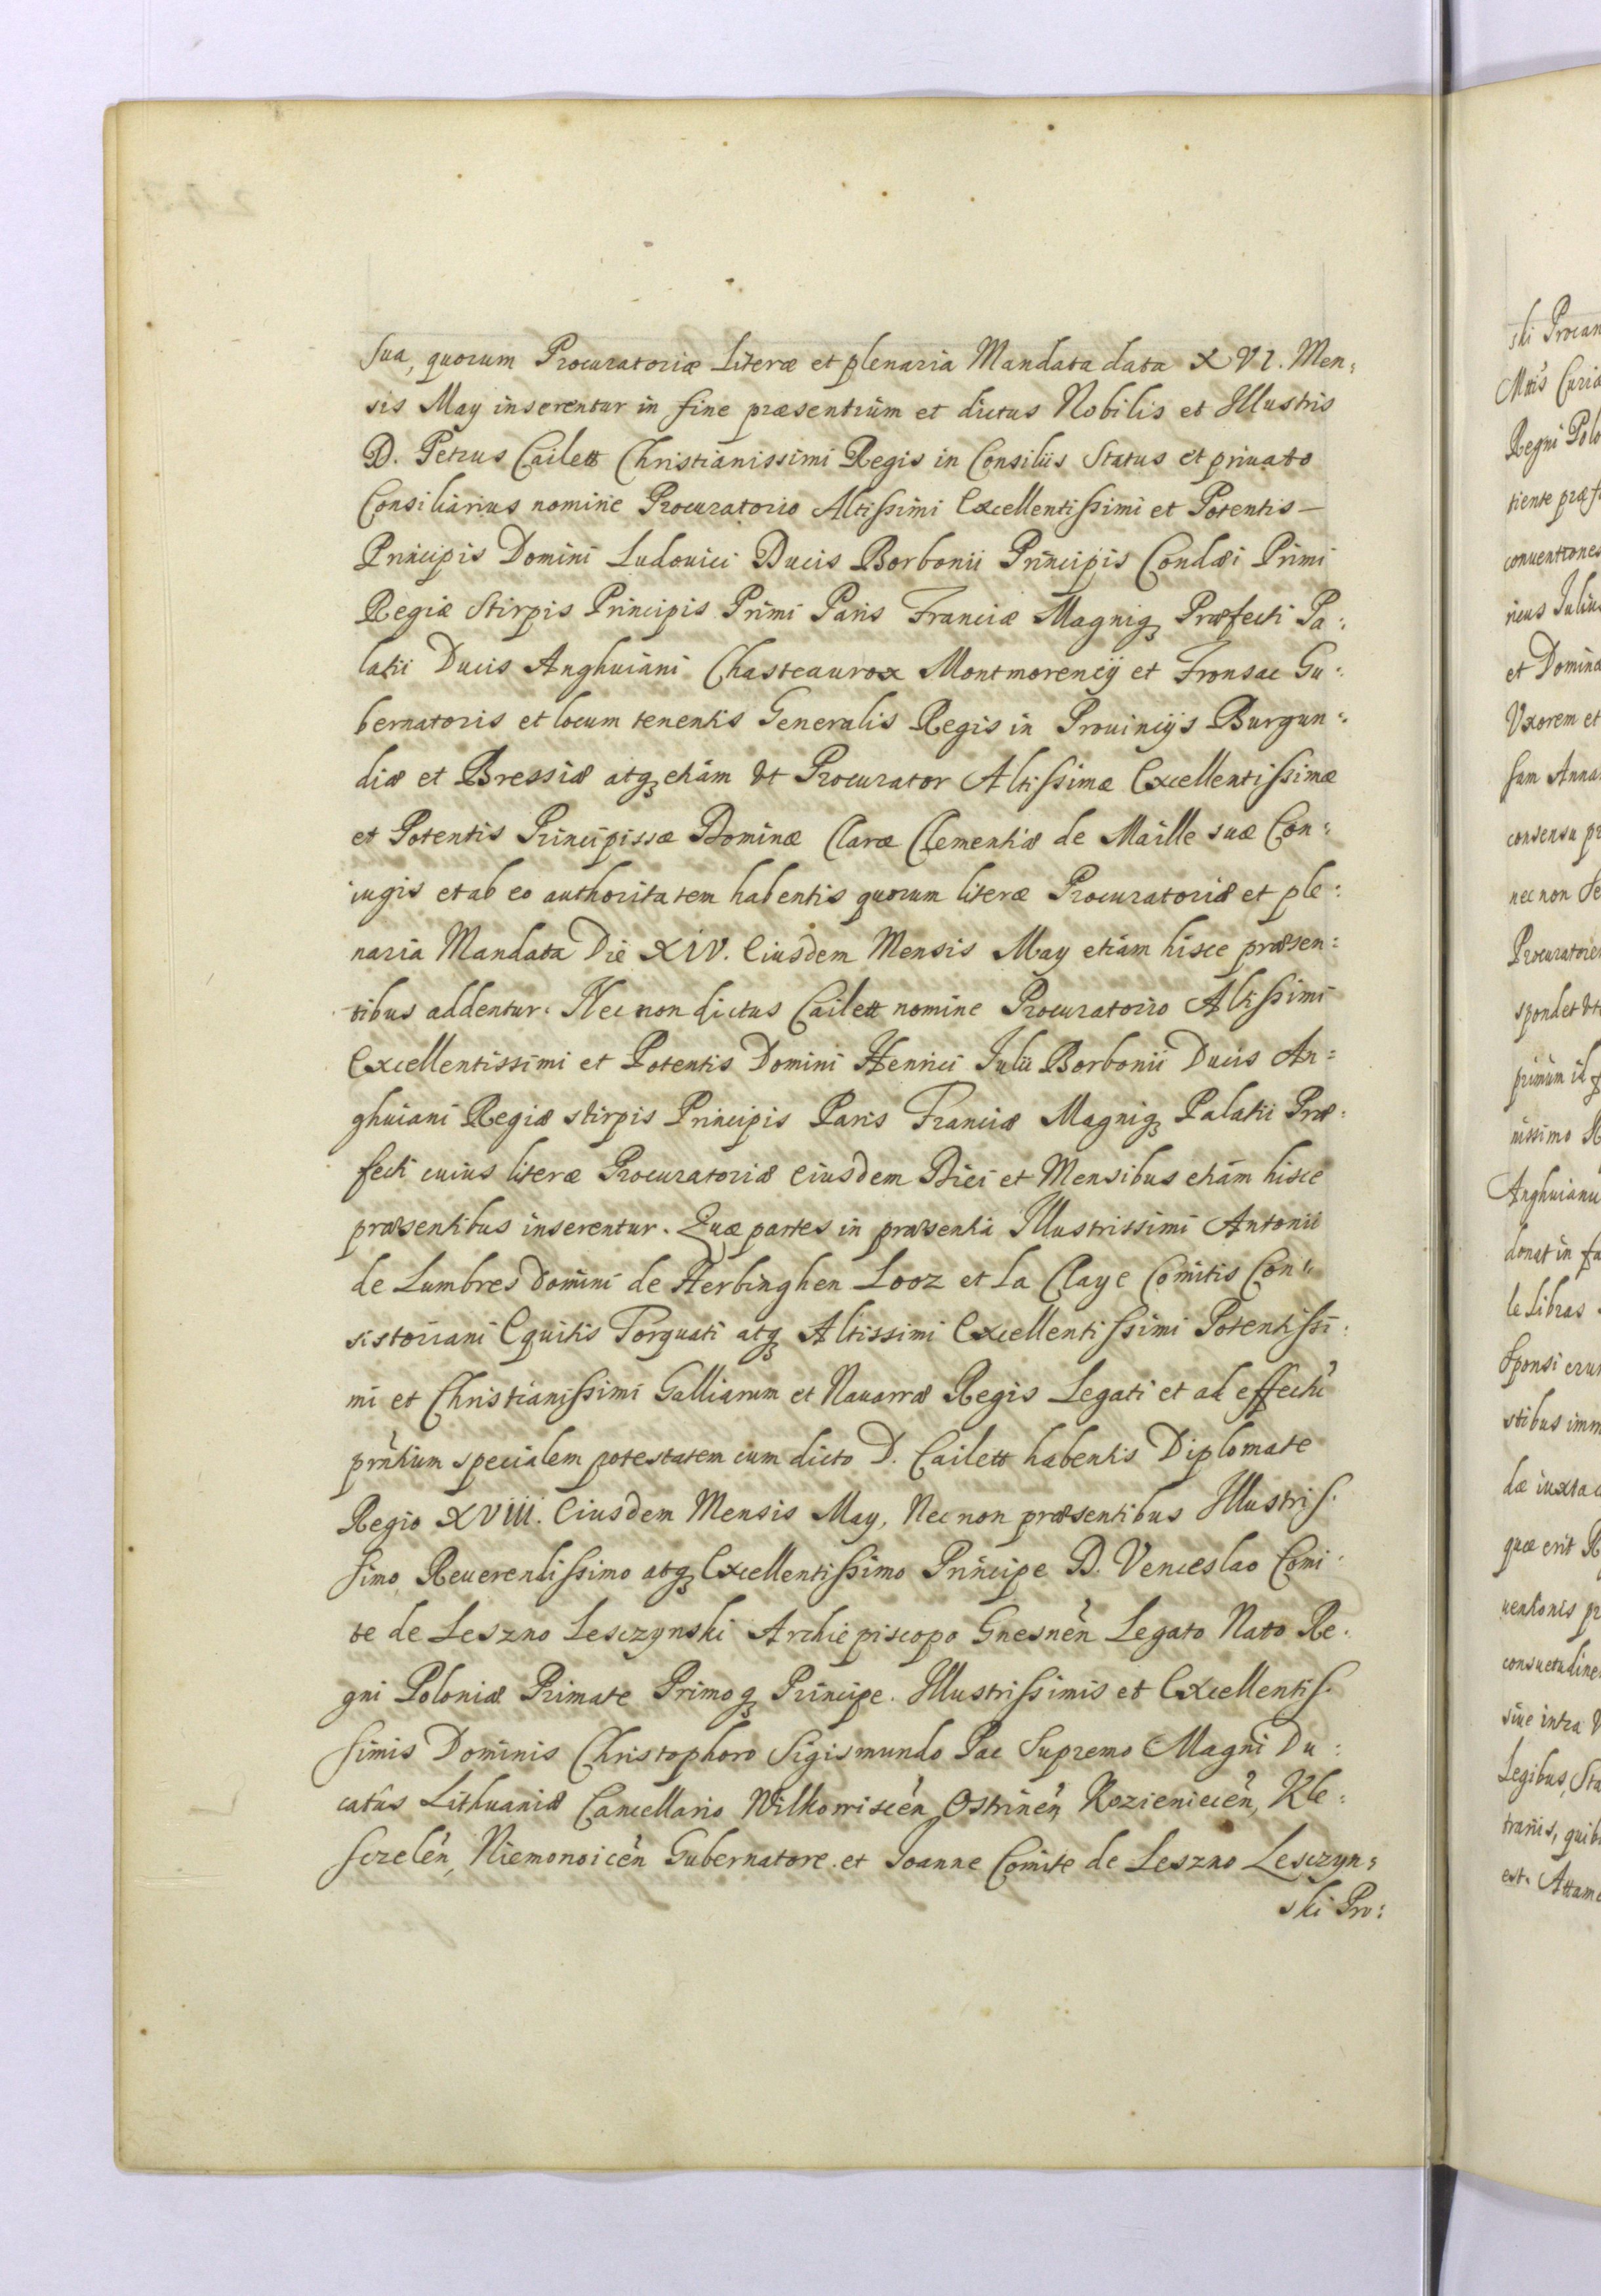 sua, quorum Procuratoriæ Literæ et plenaria Mandata data XVI. Men=
sis May inserentur in fine præsentium et dictus Nobilis et Illustris
D. Petrus Cailett Christianissimi Regis in Consiliis Status et priuato
Consiliarius nomine Procuratorio Altissimi Excellentissimi et Potentis
Principis Domini Ludouici Ducis Borbonii Principis Condæi Primi
Regiæ Stirpis Principis Primi Paris Franciæ Magniq Præfecti Pa=
latii Ducis Anghuiani Chasteaurox Montmorencij et Fronsac Gu=
bernatoris et locum tenentis Generalis Regis in Prouincijs Burgun=
diæ et Bressiæ atq etiam Vt Procurator Altissimæ Excellentissimæ
et Potentis Principissæ Dominæ Claræ Clementiæ de Maille suæ Con=
iugis et ab eo authoritatem habentis quorum literæ Procuratoriæ et ple=
naria Mandata Die XIV. Eiusdem Mensis May etiam hisce præsen=
tibus addentur. Nec non dictus Cailett nomine Procuratorio Altissimi
Excellentissimi et Potentis Domini Henrici Iulii Borbonii Ducis An=
ghuiani Regiæ stirpis Principis Paris Franciæ Magniq Palatii Præ=
fecti cuius literæ Procuratoriæ Eiusdem Diei et Mensibus etiam hisce
præsentibus inserentur. Quæ partes in præsentia Illustrissimi Antonii
de Lumbres Domini de Herbinghen Looz et La Claye Comitis Con=
sistoriani Equitis Torquati atq Altissimi Excellentissimi Potentissi=
mi et Christianissimi Galliarum et Nauarræ Regis Legati et ad effectũ
prñtium specialem potestatem cum dicto D. Cailett habentis Diplomate
Regio XVIII. Eiusdem Mensis May, Nec non præsentibus Illustris=
simo Reuerendissimo atq Excellentissimo Principe D. Venceslao Comi=
te de Leszno Lesczynski Archiepiscopo Gnesnẽn Legato Nato Re=
gni Poloniæ Primate Primoq Principe. Illustrissimis et Excellentis=
simis Dominis Christophoro Sigismundo Pac Supremo Magni Du=
catûs Lithuaniæ Cancellario Wilkomiscẽn, Ostrinẽn, Kozieniecẽn, Kle=
sczelẽn, Niemonoicẽn Gubernatore. et Joanne Comite de Leszno Lesczyn=
ski Pro:
ski Procan
Mttis Curiæ
Regni Polo
tiente præf
conuentiones
ricus Iulius
et Domina
Vxorem et
sam Anna
consensu pr
nec non
Procuratore
spondet Vt
primum
nissimo
Anghuianu
donat in fa
le Libras
Sponsi erun
stibus imm
dæ iuxta
quæ erit
uentionis pr
consuetudine
siue intra
Legibus, Sta
trariis, quib
est. Attame